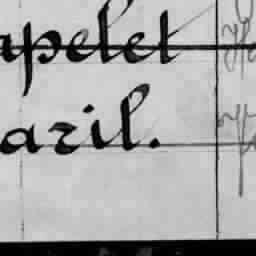 apelet
aril.